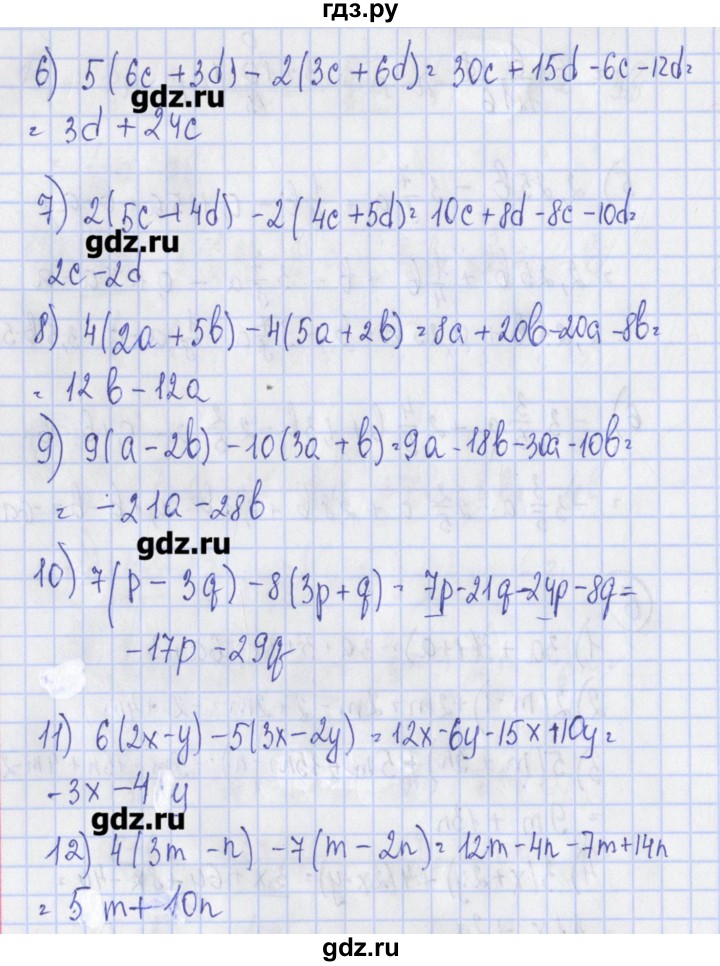 гдз.ру
6) 5(6c + 3d) - 2(3c + 6d) = 30c + 15d - 6c - 12d =
gdz.ru
= 3d + 24c
7) 2(5c + 4d) - 2(4c + 5d) = 10c + 8d - 8c - 10d =
gdz.ru
2c - 2d
8) 4(2a + 5b) - 4(5a + 2b) = 8a + 20b - 20a - 8b =
= 12b - 12a
9) 9(a - 2b) - 10(3a + b) = 9a - 18b - 30a - 10b =
= -21a - 28b
gdz.ru
10) 7(p - 3q) - 8(3p + q) = 7p - 21q - 24p - 8q =
-17p - 29q
11) 6(2x - y) - 5(3x - 2y) = 12x - 6y - 15x + 10y =
-3x - 4 y
gdz.ru
12) 4(3m - n) - 7(m - 2n) = 12m - 4n - 7m + 14n
= 5 m + 10n
gdz.ru